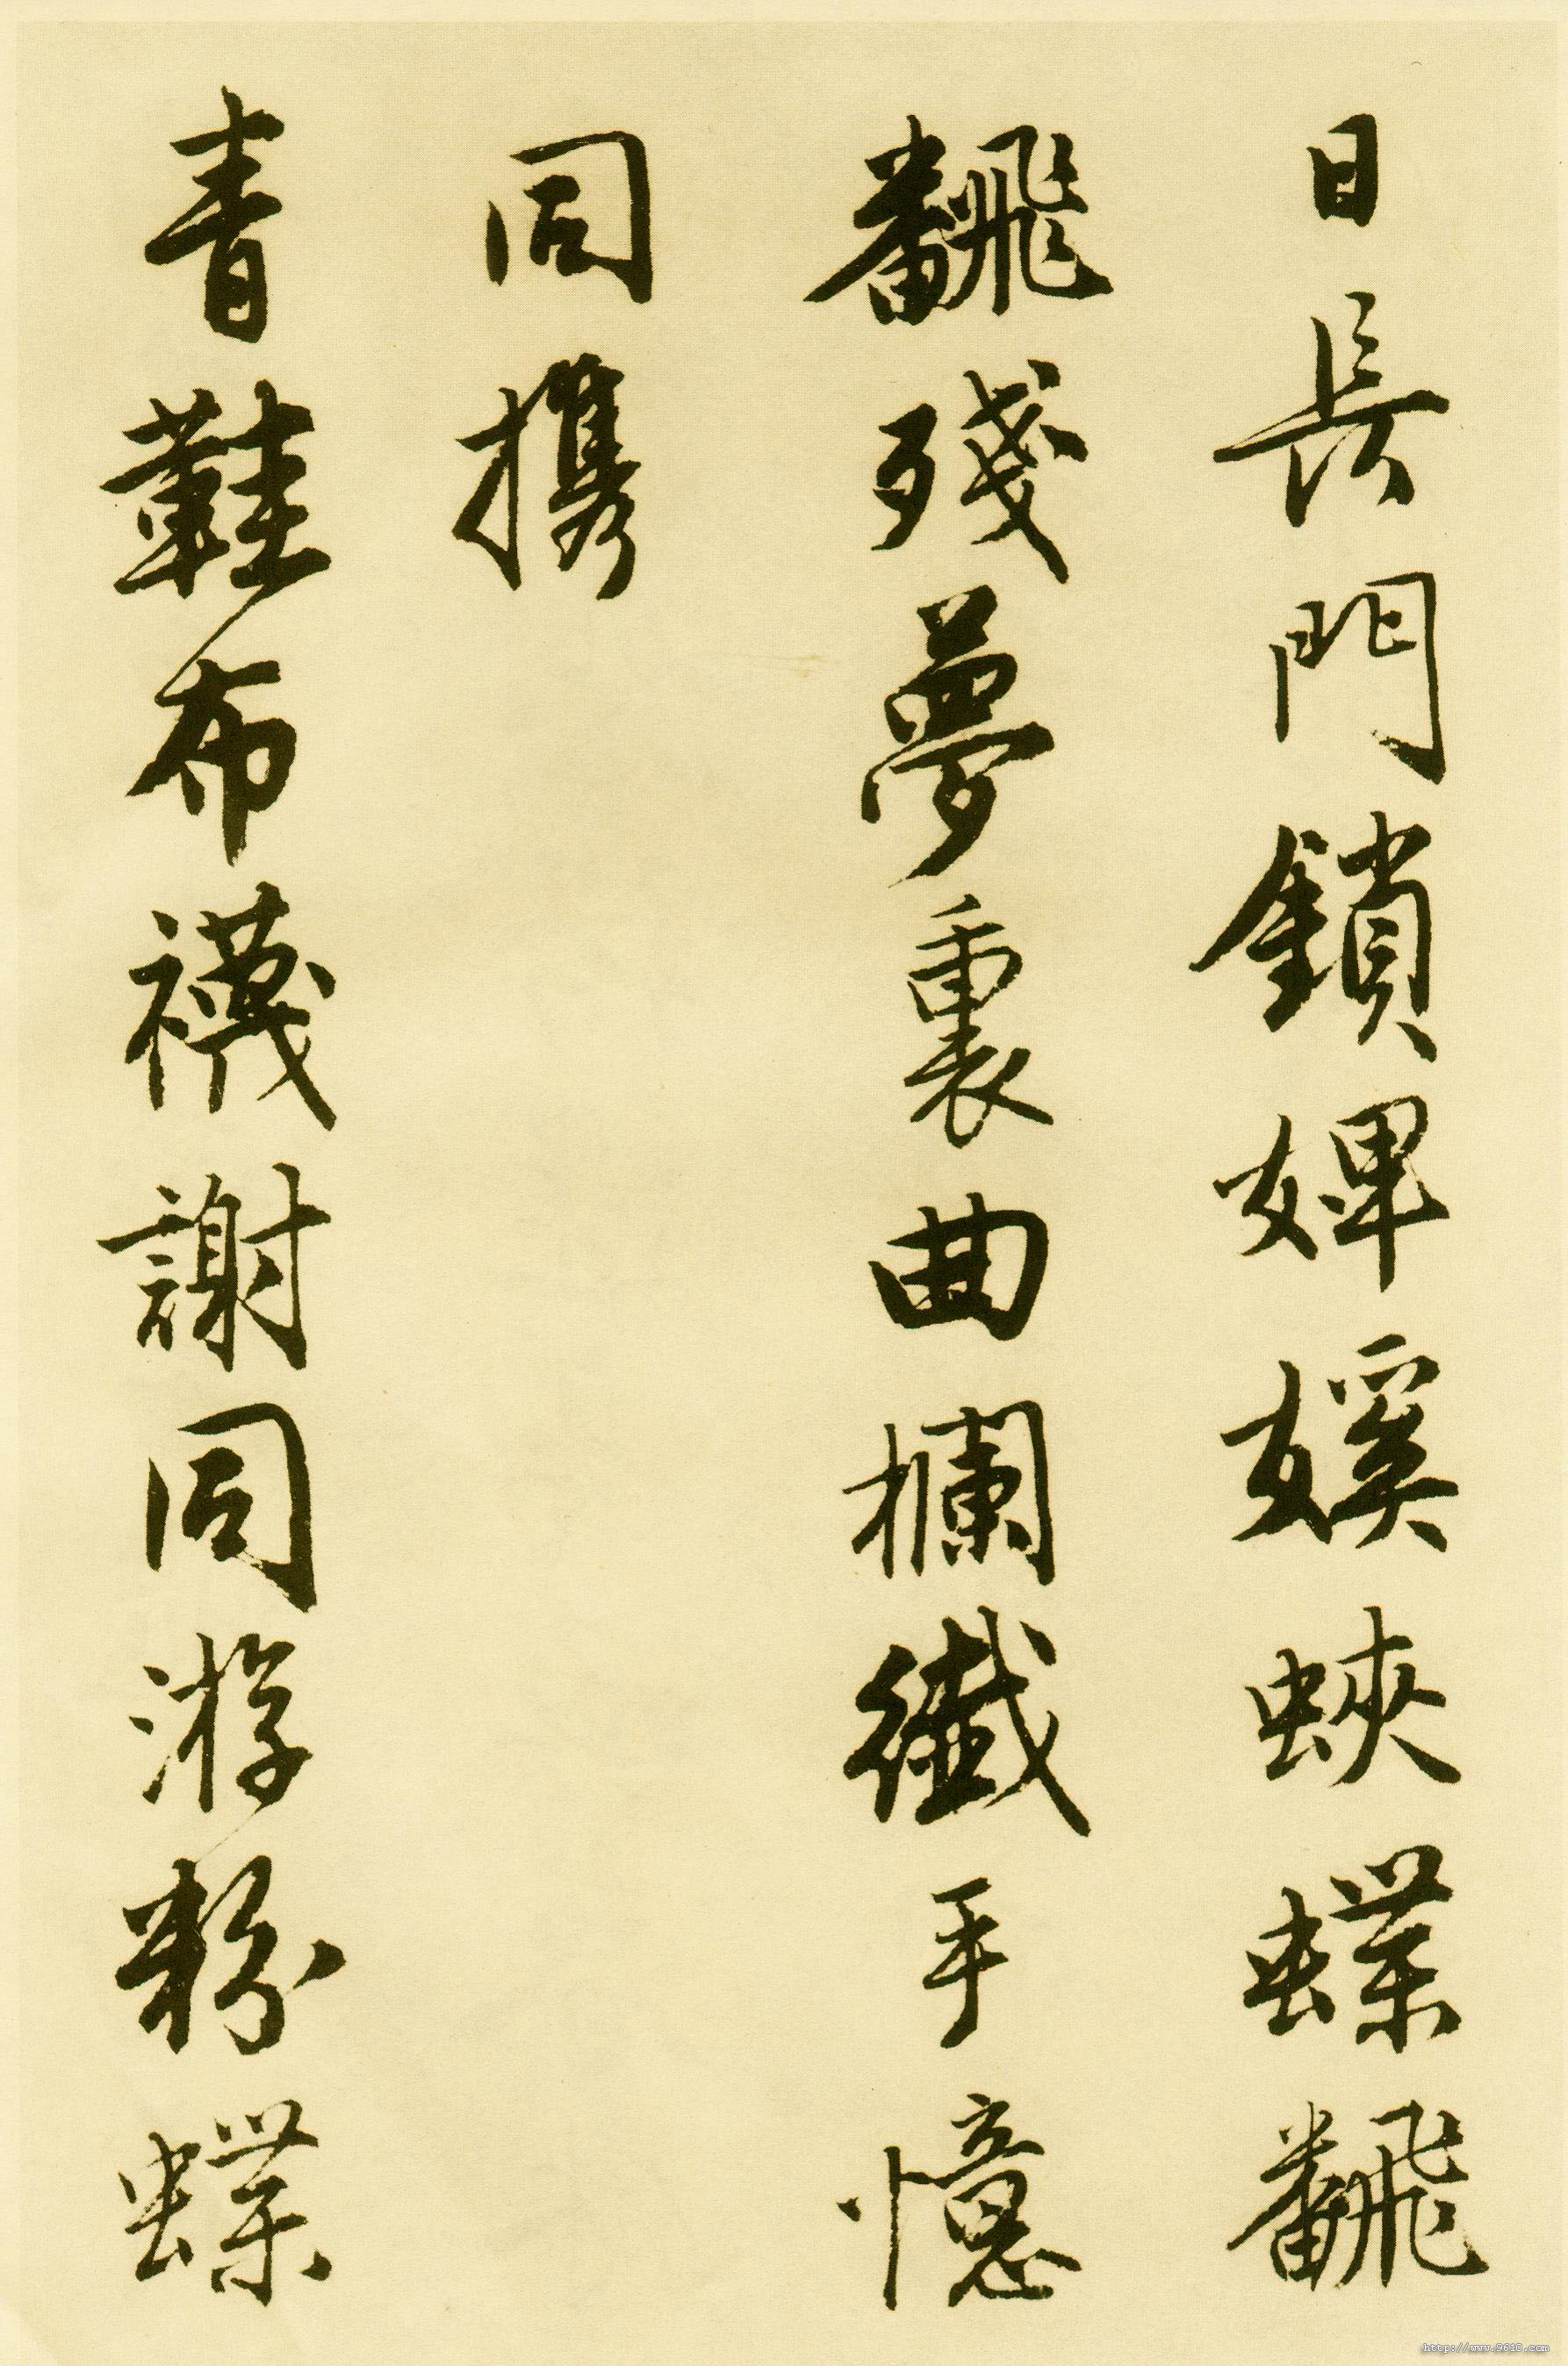 日長門鎖婢㜎蛺蝶飜
飜殘夢裏曲欄纖手憶
同携
青鞋布襪謝同游粉蝶
http://www.9610.com